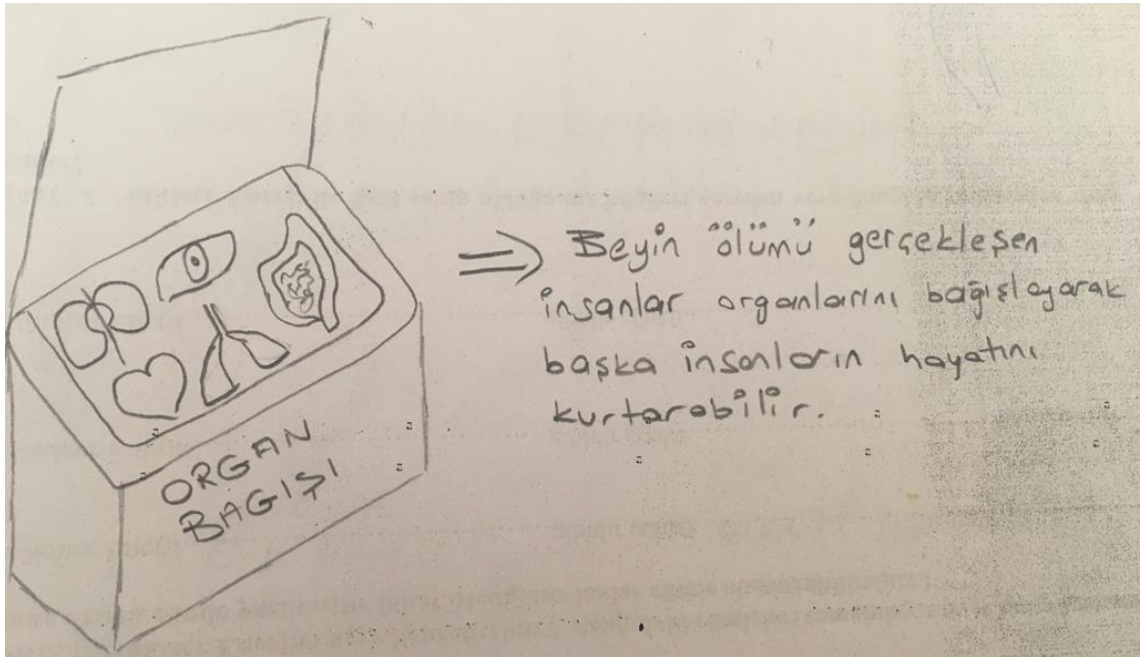 ORGAN
BAGIŞI
Beyin ölümü gerçekleşen
insanlar organlarını bağışlayarak
başka insanların hayatını
kurtarabilir.